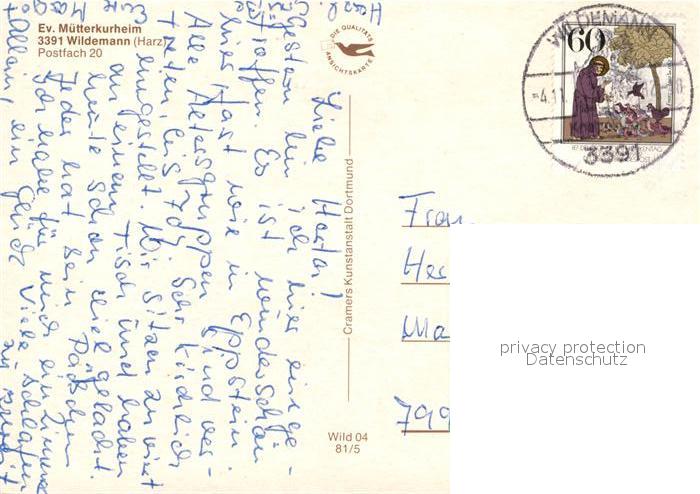 Ev. Mütterkurheim
3391 Wildemann (Harz)
Postfach 20
DIE QUALITÄTS
ANSICHTSKARTE
WILDEMANN
60
-4.11
3391
Cramers Kunstanstalt Dortmund
Wild 04
81/5
Liebe Herta!
Gestern bin ich hier einge-
troffen. Es ist wunderschön
hier, fast wie in Eppstein.
Alle Altersgruppen sind ver-
treten, bis 78. Sehr kirchlich
eingestellt. Wir sitzen zu viert
an einem Tisch und haben
heute schon viel gelacht.
Jeder hat sein Päckchen
Ich habe für mich ein Zimmer
allein, ein Glück. Viele schlafen
zu zweit
Frau
Her
Ma
799
privacy protection
Datenschutz